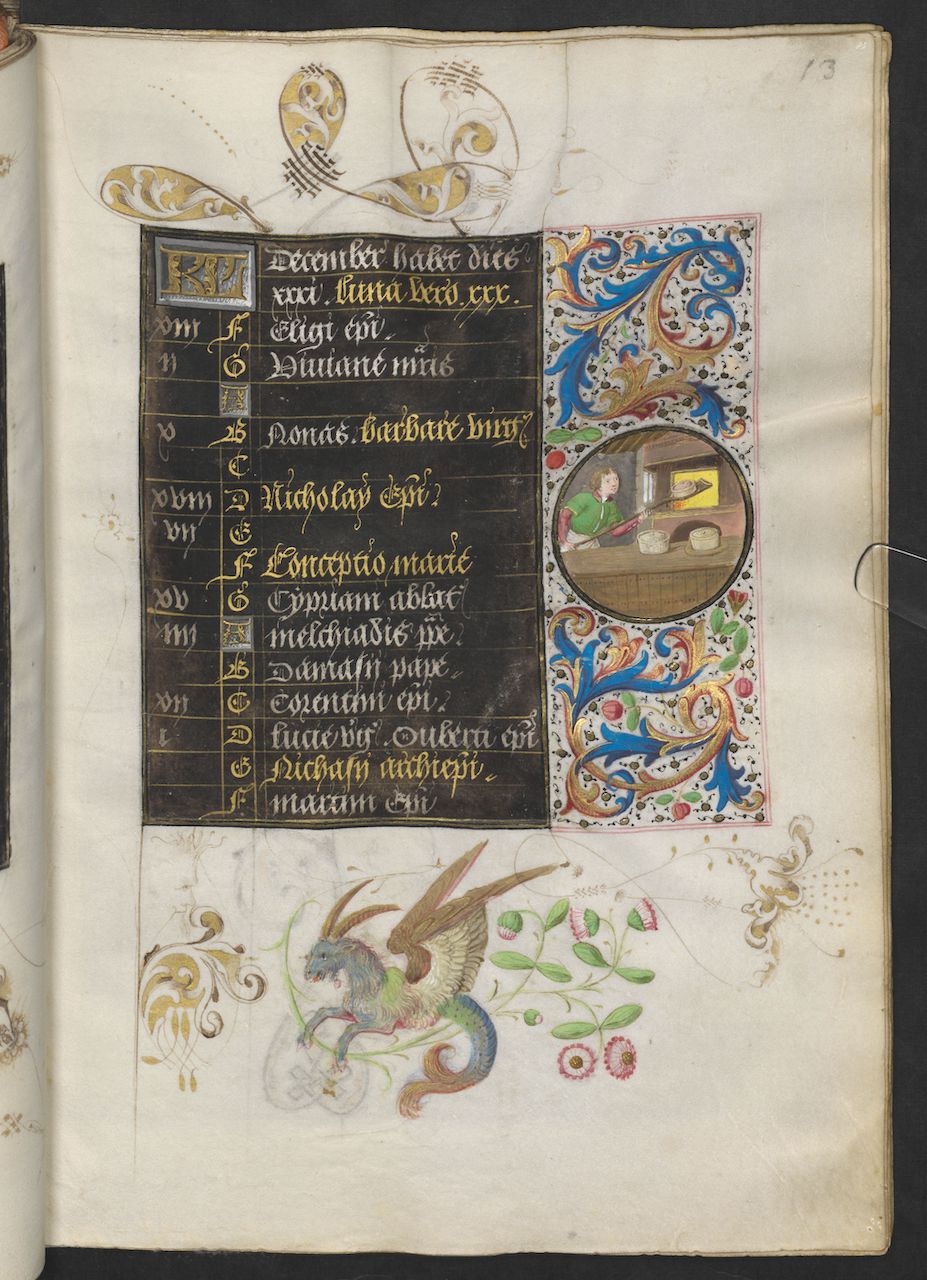 13
KL December habet dies
xxxi. Luna vero xxx.
xviii F Eligi epi.
ii G Viuiane mris
A
x B Nonas. barbare virg
C
xviii D Nicholay Epi
vii E
F Conceptio marie
xv G Cypriani abbat
iiii A melchiadis ppe.
B Damasij pape.
xii C Corentini epi.
i D Lucie vig. Auberti epi
E Nichasij archiepi.
F maximi Epi